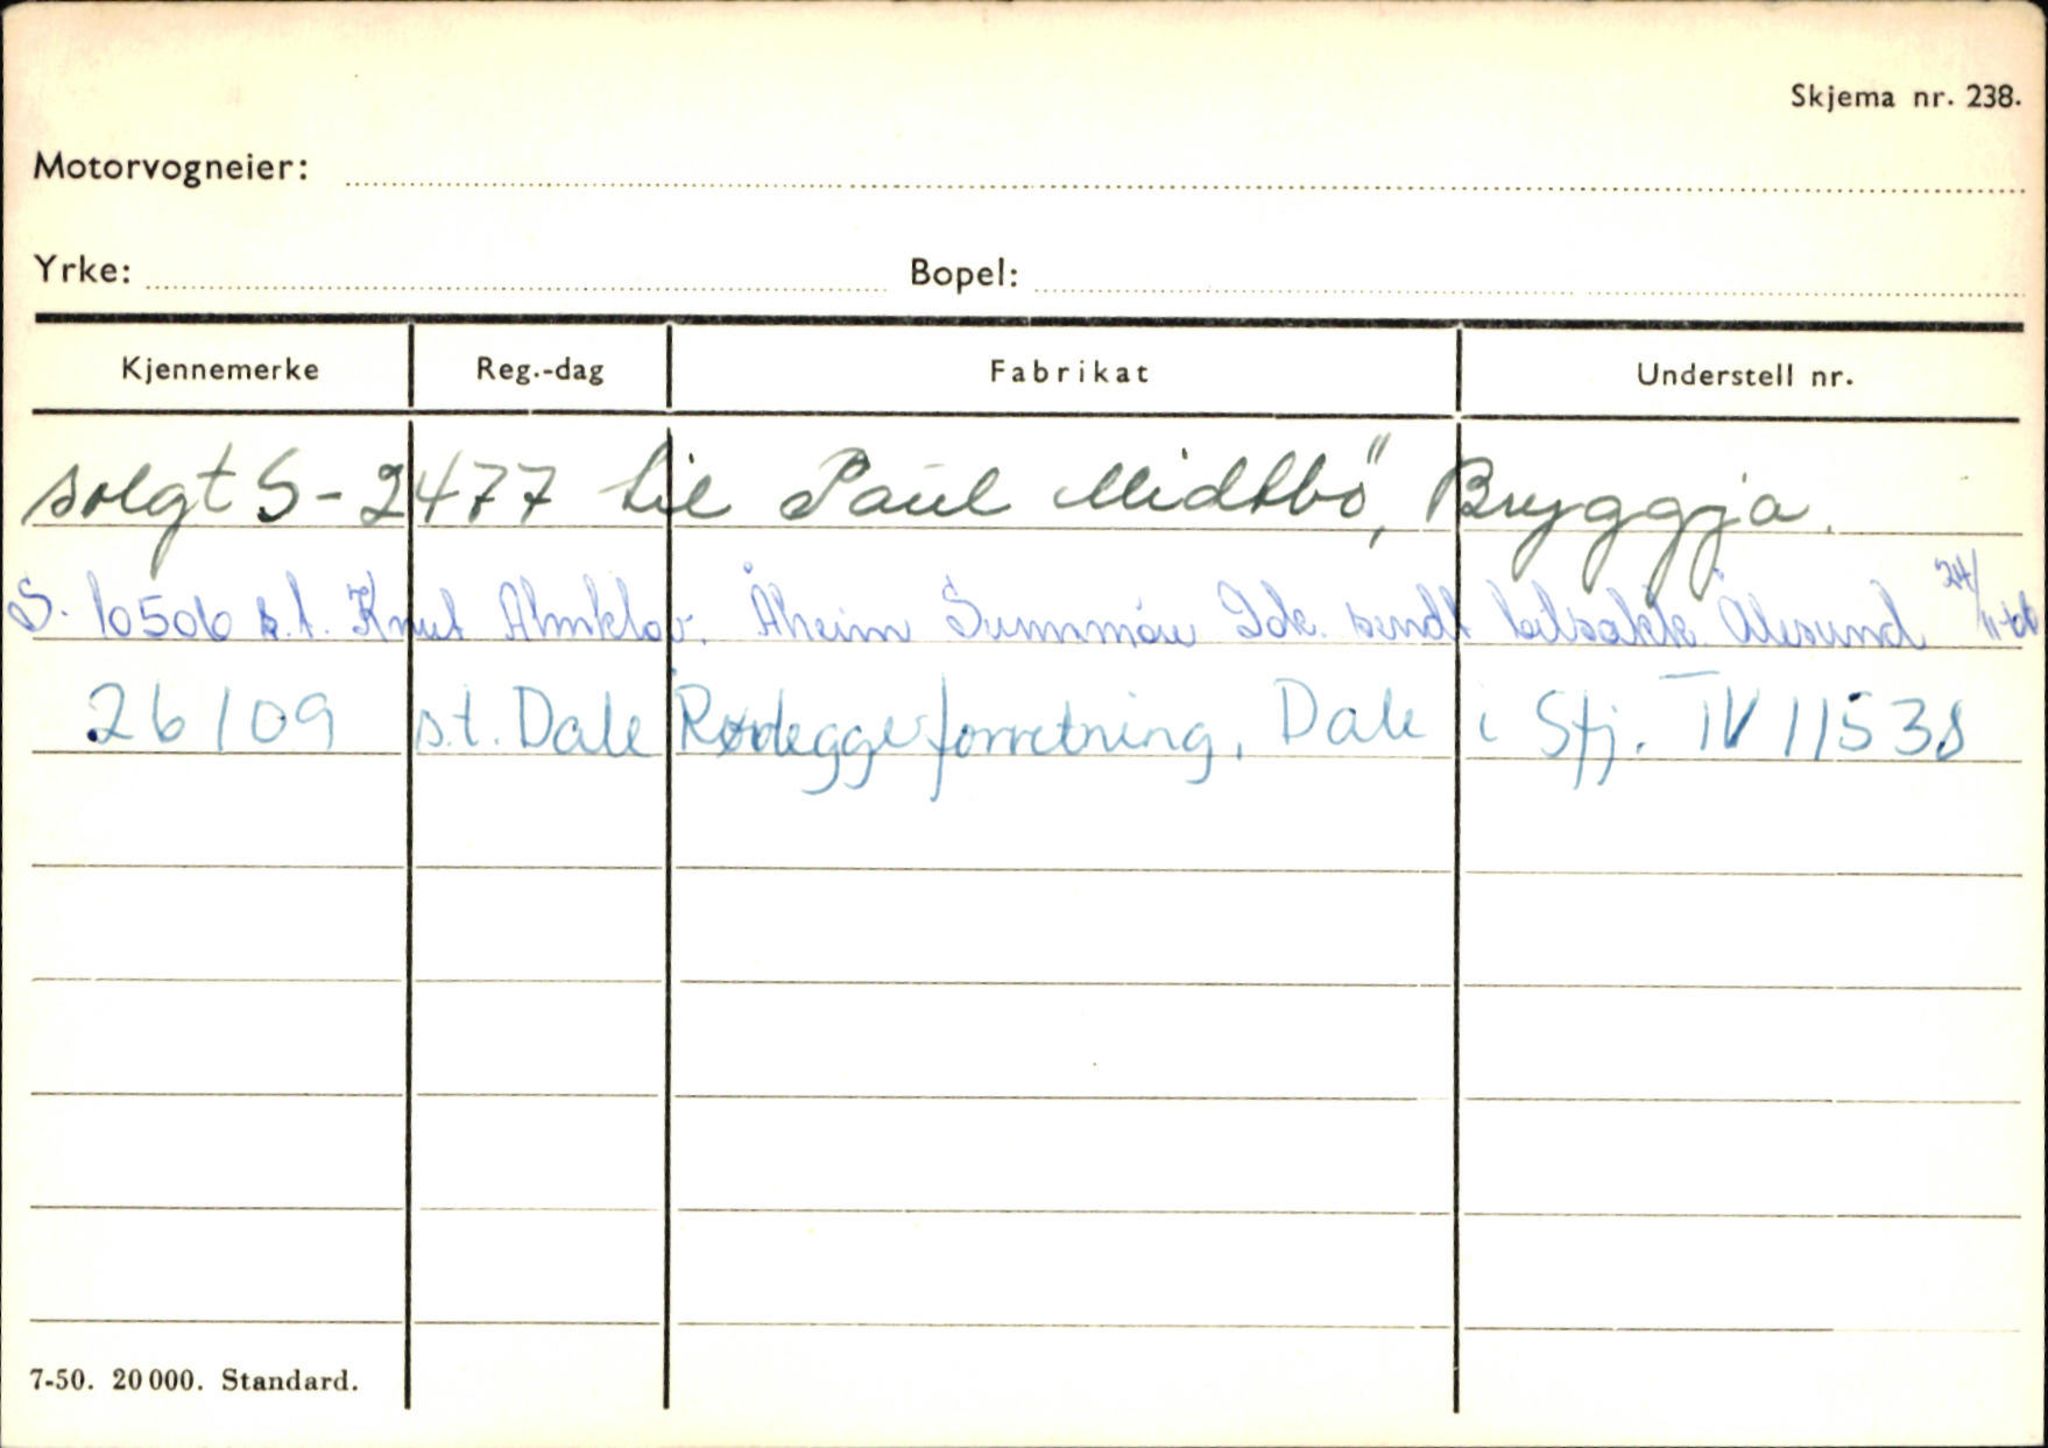 Skjema nr. 238.
Motorvogneier:
Yrke: Bopel:
Kjennemerke Reg.-dag Fabrikat Understell nr.
solgt S-2477 til Paul Midtbö, Bryggja.
S. 10506 s.t. Knut Almklov. Åheim Sunnmøre Idk. sendt bilsakk. Ålesund 24/11-66
26109 s.t. Dale forretning, Dale i Sfj. TV 11538
7-50. 20 000. Standard.